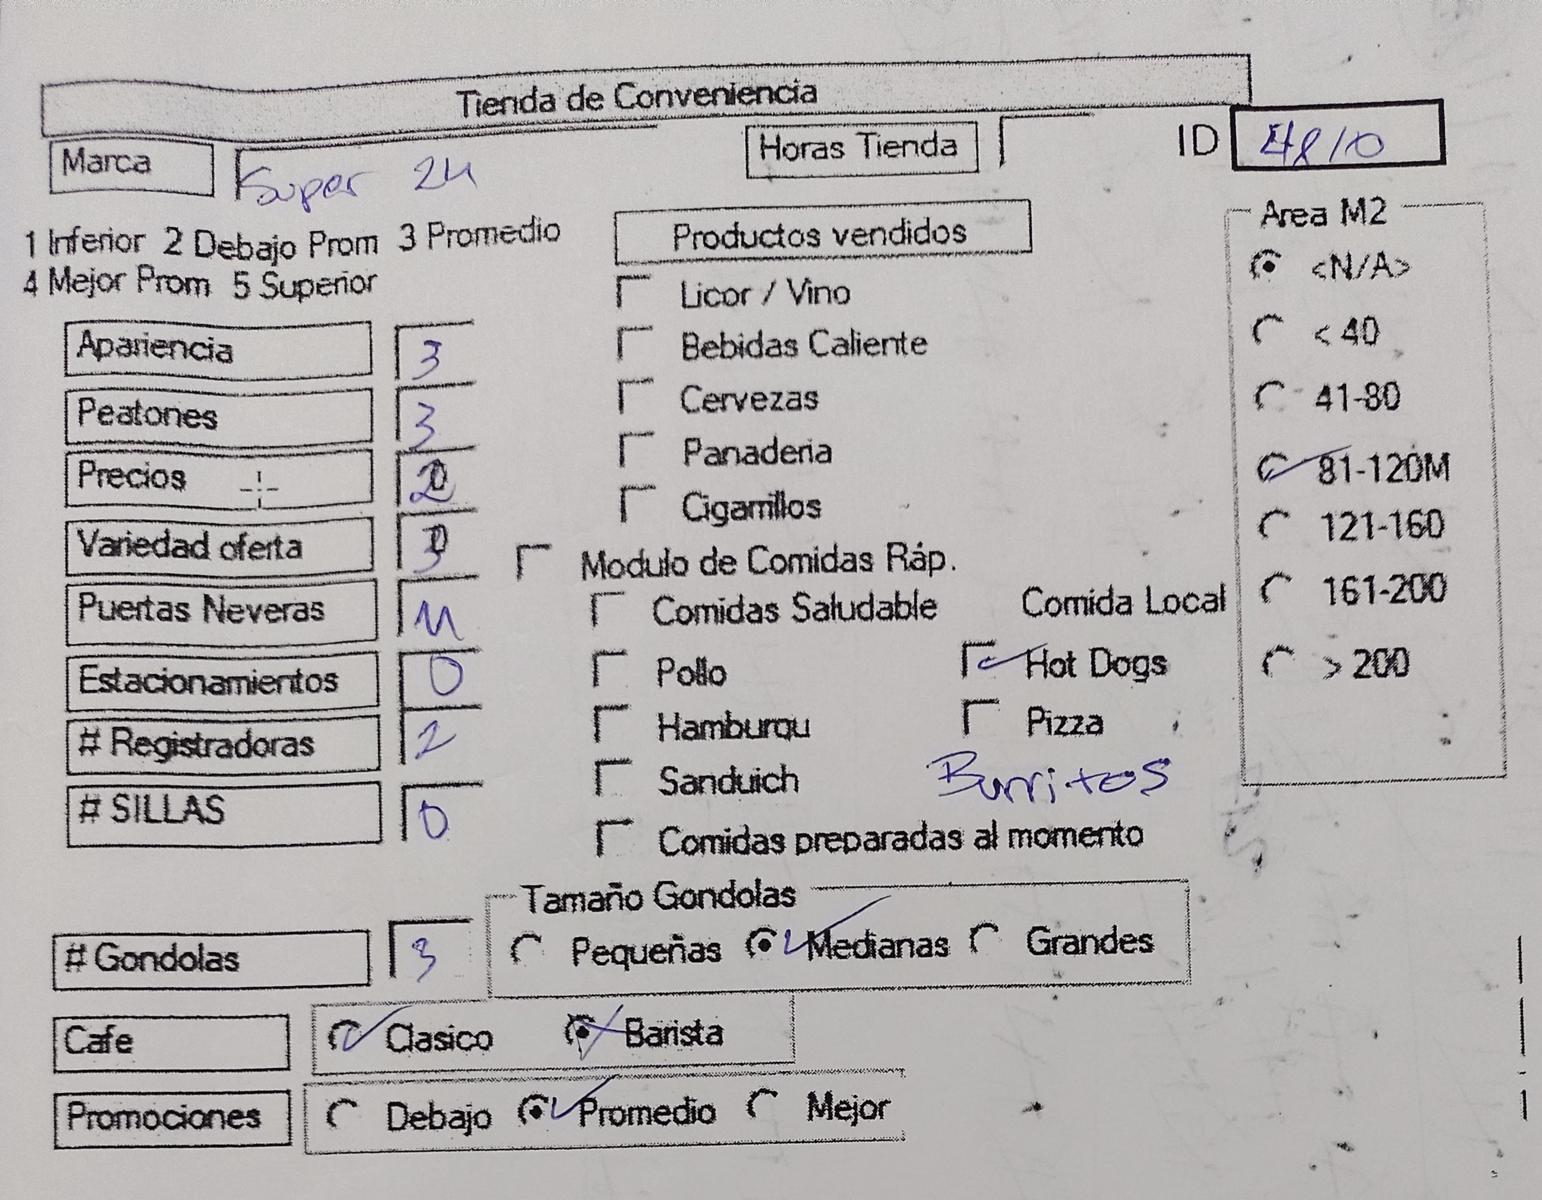 Tienda de Conveniencia
Marca Super 24 Horas Tienda ID 4810
1 Inferior 2 Debajo Prom 3 Promedio
4 Mejor Prom 5 Superior
Productos vendidos
Licor / Vino
Bebidas Caliente
Cervezas
Panaderia
Cigarrillos
Area M2
<N/A>
< 40
41-80
81-120M
121-160
161-200
> 200
Apariencia 3
Peatones 3
Precios 2
Variedad oferta 3
Puertas Neveras
Estacionamientos 0
# Registradoras 2
# SILLAS 0
Modulo de Comidas Ráp.
Comidas Saludable Comida Local
Pollo Hot Dogs
Hamburqu Pizza
Sanduich Burritos
Comidas preparadas al momento
# Gondolas 3
Tamaño Gondolas
Pequeñas Medianas Grandes
Cafe Clasico Barista
Promociones Debajo Promedio Mejor